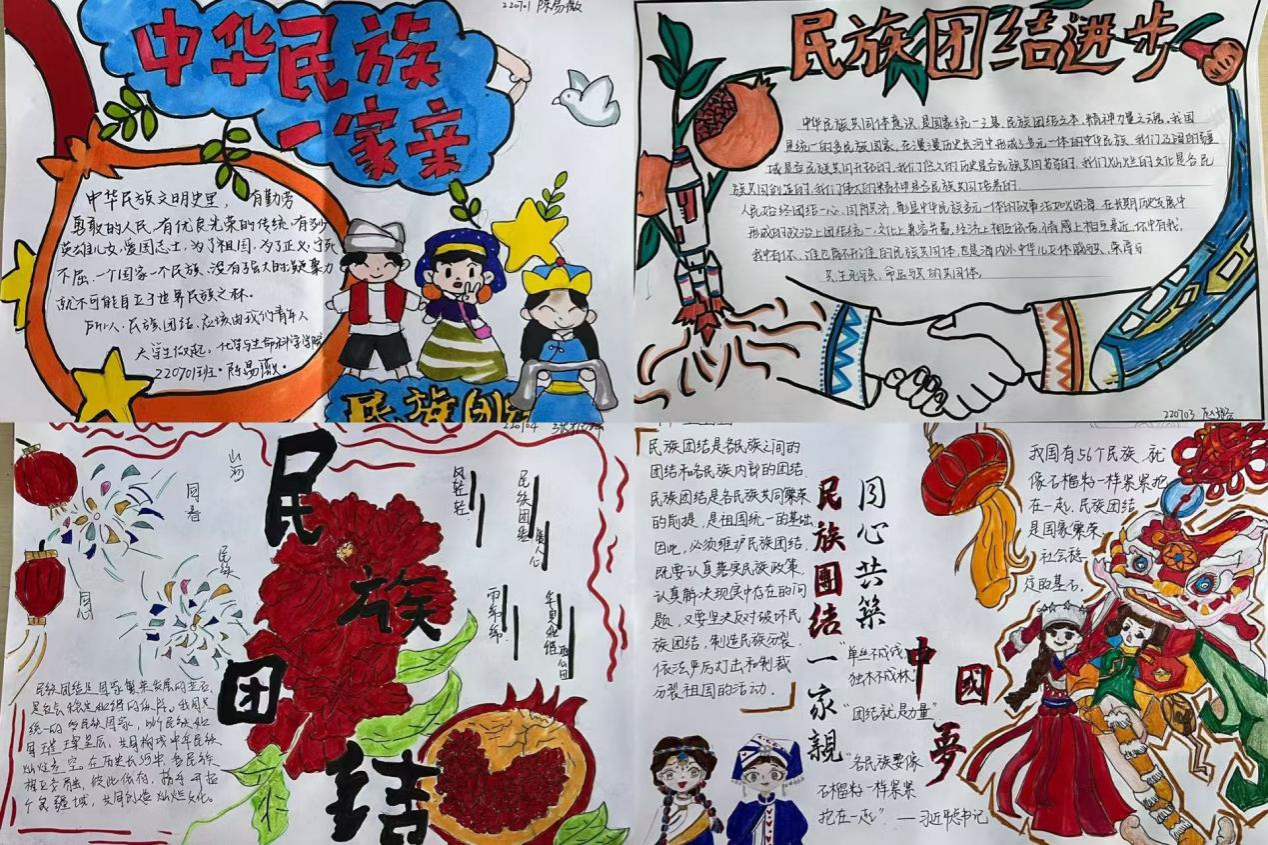 220701 陈易薇
中华民族
一家亲
中华民族文明史里，有勤劳
勇敢的人民，有优良光荣的传统，有多少
英雄儿女，爱国志士，为了祖国，为了正义，宁死
不屈。一个国家一个民族，没有强大的凝聚力
就不可能自立于世界民族之林。
所以，民族团结，应该由我们青年人
大学生做起。化学与生命科学学院
220701班·陈易薇。
民族团
民族团结进步
中华民族共同体意识是国家统一之基，民族团结之本，精神力量之魂。我国
是统一的多民族国家，在漫漫历史长河中形成了多元一体的中华民族。我们辽阔的疆
域是各民族共同开拓的，我们悠久的历史是各民族共同书写的，我们灿烂的文化是各民
族共同创造的，我们伟大的精神是各民族共同培养的。
人民始终团结一心，同舟共济，彰显中华民族多元一体的故事
形成的政治上团结统一，文化上兼容并蓄，经济上相互依存，情感上相互亲近，你中有我，
我中有你，谁也离不开谁的民族共同体，也是海内外中华儿女休戚与共、荣辱与
共、生死与共、命运与共的共同体。
220703
220704
民族团结
山河
同看
民族
同心
风轻轻
民族团结
暖人心
雨绵绵
民族团结是国家繁荣发展的基石，
是社会稳定
统一的多民族国家，
同璀璨星辰，共同构成中华民族
灿烂星空。在历史长河中，各民族
相互交融，彼此依存，携手开拓
了
疆域，共同创造灿烂文化。
民族团结是各民族之间的
团结和各民族内部的团结。
民族团结是各民族共同繁荣
的前提，是祖国统一的基础
因此，必须维护民族团结，
既要认真落实民族政策，
认真解决现实中存在的问
题，又要坚决反对破坏民
族团结，制造民族分裂，
依法严厉打击和制裁
分裂祖国的活动。
民族團结一家親
同心共築
中國夢
"单丝不成线
独木不成林"
"团结就是力量"
"各民族要像
石榴籽一样紧紧
抱在一起" ——习近平总书记
我国有56个民族，就
像石榴籽一样紧紧抱
在一起。民族团结
是国家繁荣、
社会稳
定的基石。